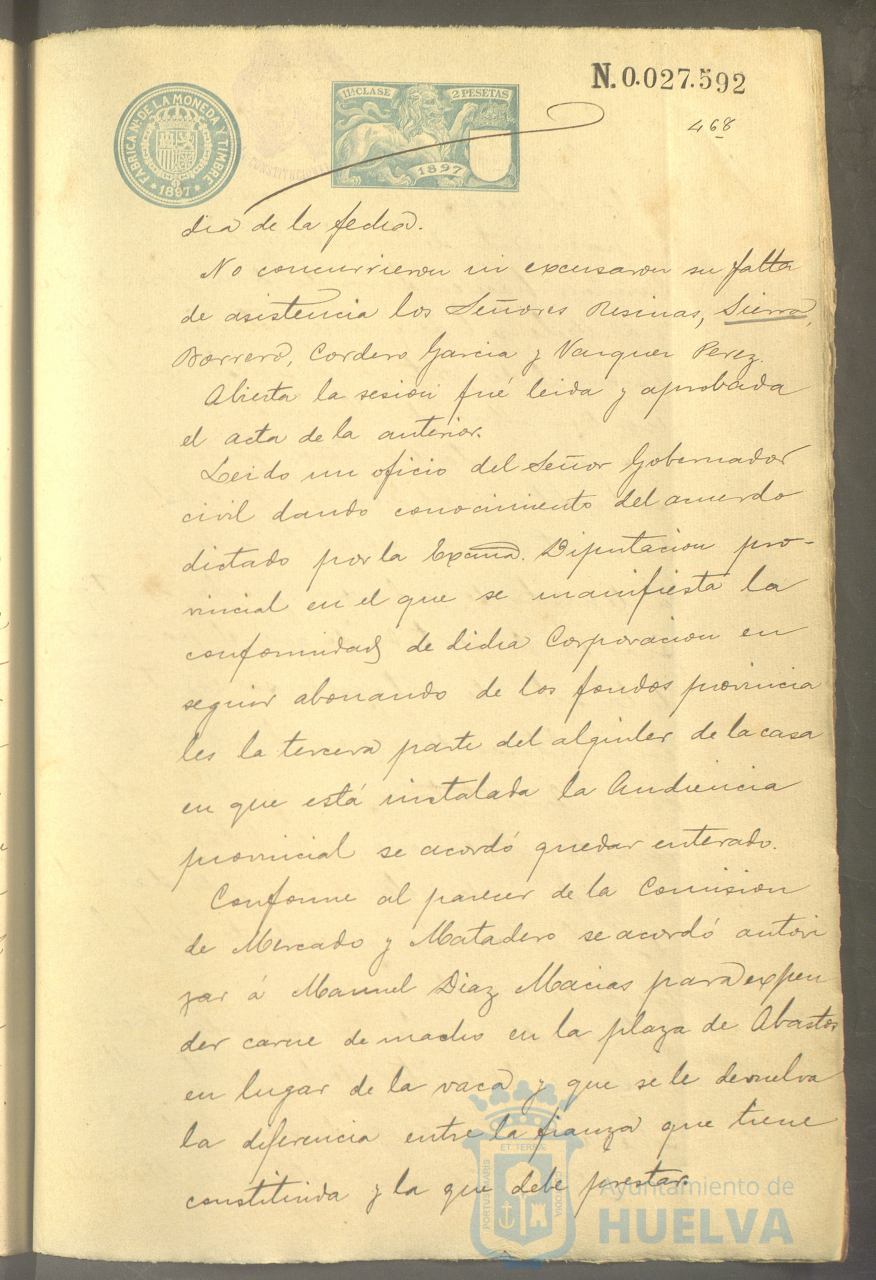 N.0.027.592
468
FABRICA Nal. DE LA MONEDA Y TIMBRE
* 1897 *
11ª CLASE 2 PESETAS
1897
CONSTITUCIONAL
dia de la fecha.
No concurrieron ni excusaron su falta
de asistencia los Señores Resinas, Sierra,
Borrero, Cordero Garcia y Vazquez Perez.
Abierta la sesion fué leida y aprobada
el acta de la anterior.
Leido un oficio del Señor Gobernador
civil dando conocimiento del acuerdo
dictado por la Excma. Diputacion pro-
vincial en el que se manifiesta la
conformidad de dicha Corporacion en
seguir abonando de los fondos provincia
les la tercera parte del alquiler de la casa
en que está instalada la Audiencia
provincial se acordó quedar enterado.
Conforme al parecer de la Comision
de Mercado y Matadero se acordó autori
zar á Manuel Diaz Macias para expen
der carne de macho en la plaza de Abastos
en lugar de la vaca y que se le devuelva
la diferencia entre la fianza que tiene
constituida y la que debe prestar.
PORTUS MARIS ET TERRAE CUSTODIA
Ayuntamiento de
HUELVA